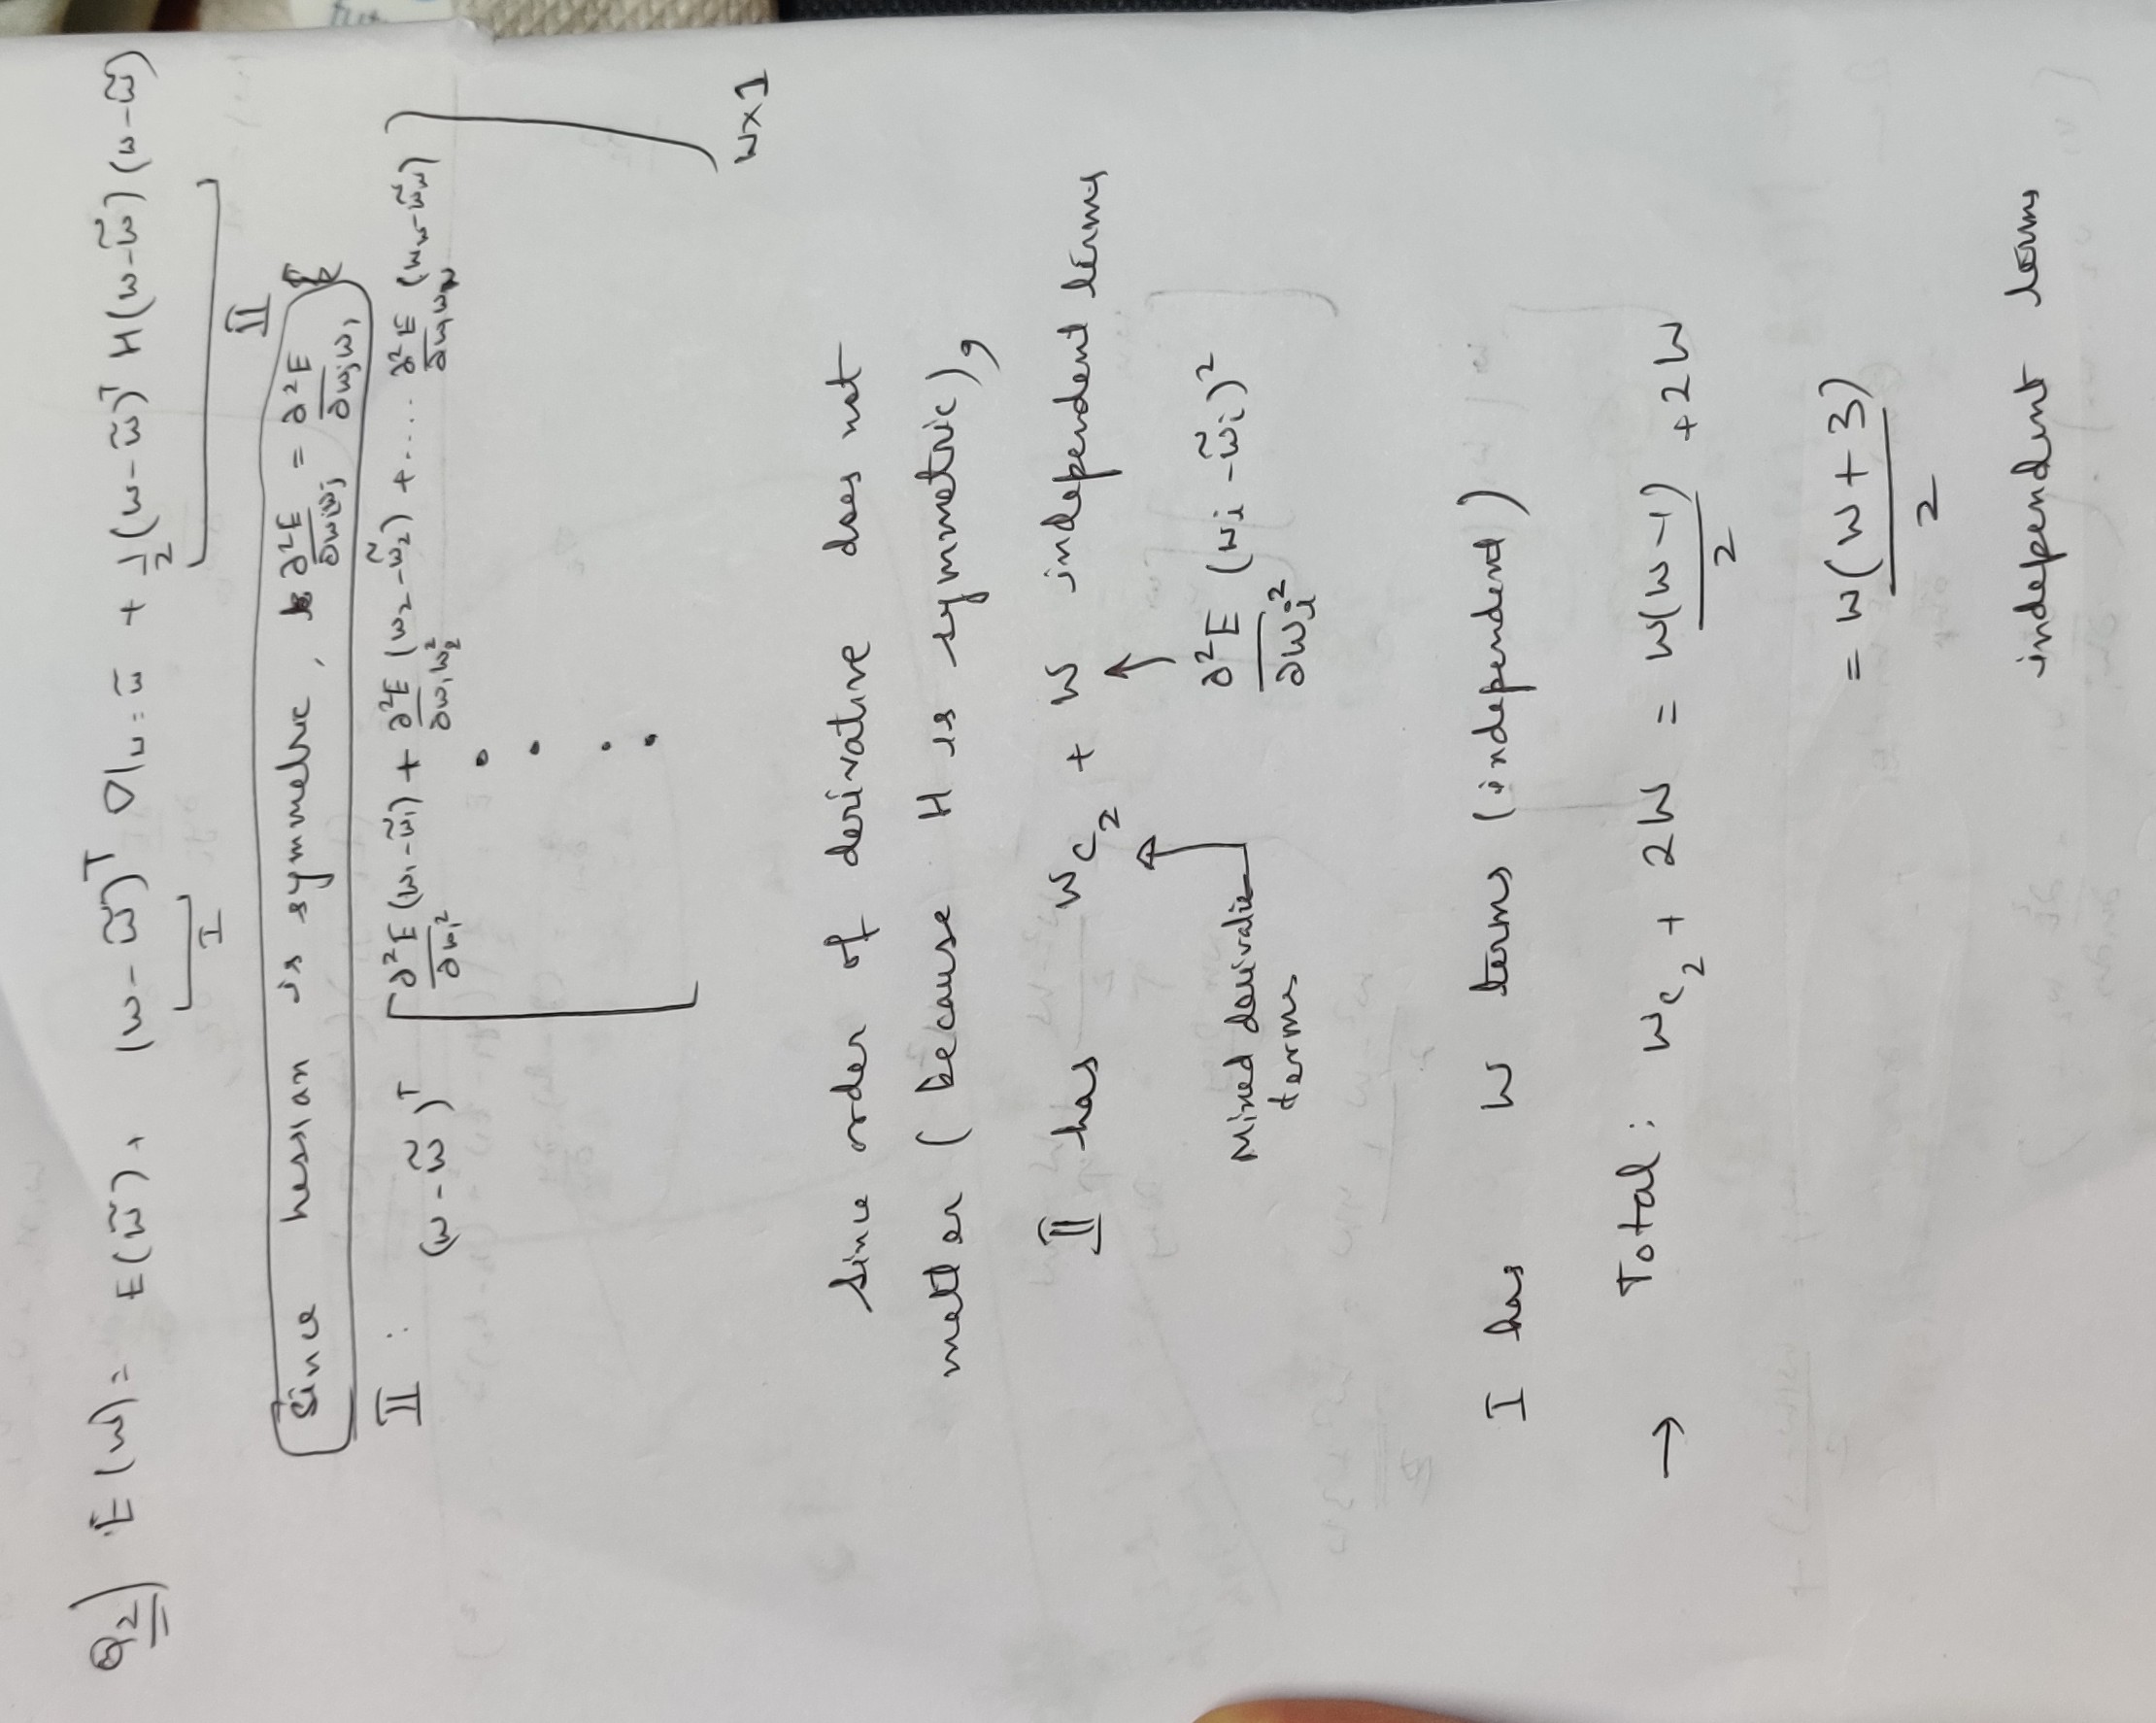 Q2) E(w) = E(w̃) + (w - w̃)ᵀ ∇|w = w̃ + 1/2 (w - w̃)ᵀ H(w - w̃) (w - w̃)
I
II
Since hessian is symmetric, ∂²E/∂wiwj = ∂²E/∂wjwi
II : (w - w̃)ᵀ [ ∂²E/∂w₁² (w₁ - w̃₁) + ∂²E/∂w₁w₂² (w₂ - w̃₂) + .... ∂²E/∂w₁wW (wW - w̃W) ]
W×1
Since order of derivative does not
matter (because H is symmetric),
II has ᵂC₂ + W independent terms
Mixed derivative
terms
∂²E/∂wi² (wi - w̃i)²
I has W terms (independent)
→ Total: ᵂC₂ + 2W = W(W-1)/2 + 2W
= W(W+3)/2
independent terms